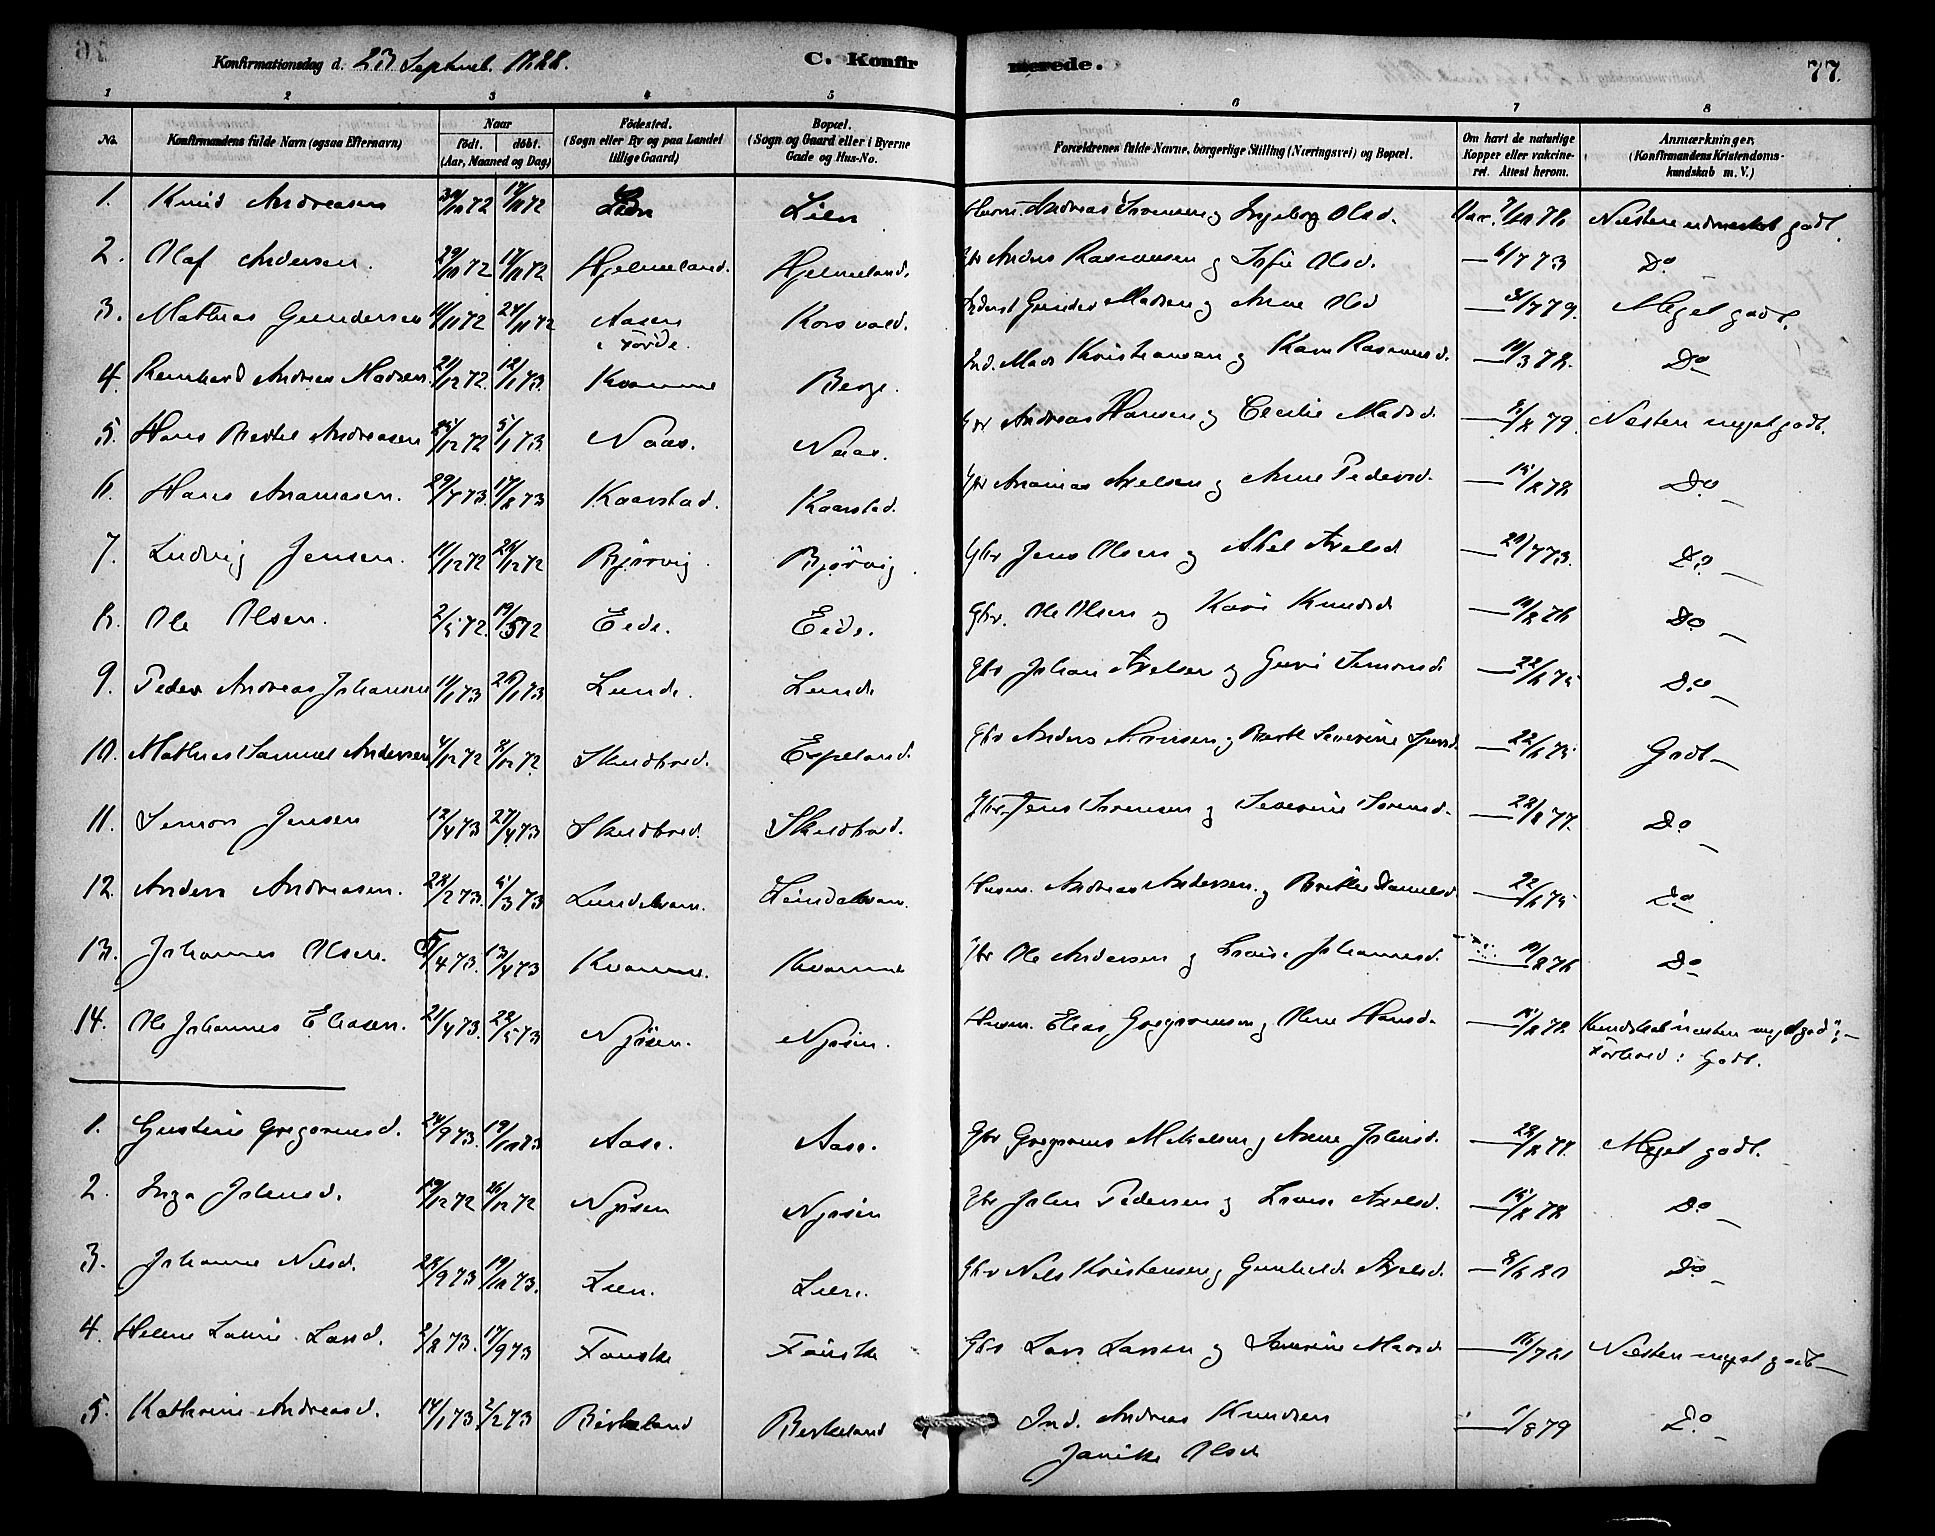 Konfirmationsdag d. 23 Septemb. 1888. C. Konfirmerede. 77.
1 2 3 4 5 6 7 8
No. Konfirmandens fulde Navn (ogsaa Efternavn) Naar født. døbt. (Aar, Maaned og Dag) Fødested. (Sogn eller By og paa Landet tillige Gaard) Bopæl. (Sogn og Gaard eller i Byerne Gade og Hus-No. Forældrenes fulde Navne, borgerlige Stilling (Næringsvei) og Bopæl. Om havt de naturlige Kopper eller vakcineret. Attest herom. Anmærkninger. (Konfirmandens Kristendomskundskab m. V.)
1. Knud Andreasen 72 72 Lien Lien Andreas Ingeborg Olsd. Vac. Næsten udmerket godt.
2. Olaf Andersen. 29/10 72 72 Hjelmeland. Hjelmeland. Gbr Anders Rasmussen og Sofie Olsd. 6/7 73 Do
3. Mathias Gundersen 11/11 72 24/11 72 Aasen i Førde. Korsvold. Gunder Madsen og Anne Olsd 79. Meget godt.
4. Reinhard Andreas Madsen. 21/12 72. 12/1 73. Kvamme Berge. Ind. Mads Kristiansen og Kari Rasmusd. Do
5. Hans Bertel Andreasen 72 5/1 73. Naas. Naas. Gbr Andreas Hansen og Cecilie Madsd. 79. Næsten meget godt.
6. Hans Ananiasen. 29/7 73. 17/8 73 Kaarstad. Kaarstad. Gbr Ananias Axelsen og Anne Pedersd. 15/8 78 Do
7. Ludvig Jensen. 11/12 72 26/12 72 Bjørvig. Bjørvig. Gbr Jens Olsen og Axelsd 73. Do
8. Ole Olsen. 2/5 72. 19/5 72 Eide. Eide. Gbr. Ole Olsen og Kari Knudsd 76 Do
9. Peder Andreas Johansen 73 26/1 73 Lunde. Lunde Gbr Johan Axelsen og Simonsd. 22/6 75 Do
10. Mathias Samuel Andersen 4/12 72 8/12 72. Skudbred. Espeland. Gbr Anders og Severine 22/6 75 Godt
11. Simon Jensen 12/4 73 27/4 73 Skudbred. Skudbred. Gbr. Jens Sørensen og Severine Sørensd. 77. Do
12. Anders Andreasen. 28/2 73. 73 Lundekvam. Lundekvam. Husm. Andreas Andersen og Danielsd. 22/6 75 Do
13. Johannes Olsen. 5/4 73. 13/4 73 Kvamme. Kvamme Gbr Ole Andersen og Lovise Johannesd. 76 Do
14. Ole Johannes Eliasen. 21/4 73. 73 Njøsen. Njøsen. Husm. Elias Gregoriusen og Oline Hansd. 15/8 78 Kundskab "næsten meget godt";
Forhold: Godt.
1. Gustine Gregoriusd. 24/9 73. 19/10 73 Aase. Aase. Gbr Gregorius Mikkelsen og Anne Johnsd. 77. Meget godt.
2. Inga Johnsd. 19/12 72 26/12 72 Njøsen Njøsen Gbr John Pedersen og Lovise Axelsd. 15/8 78 Do
3. Johanne Nilsd. 28/9 73 19/10 73. Lien. Lien. Gbr Nils Kristensen og Gunhilde Axelsd. 8/6 80 Do
4. Helene Lovise Larsd. 8/8 73. 14/9 73 Fauske Fauske Gbr Lars Larsen og Severine Madsd 16/7 81 Næsten meget godt
5. Kathrine Andreasd. 14/1 73 2/2 73 Birkeland Birkeland Ind. Andreas Knudsen
Janikke Olsd 1/8 79 Do